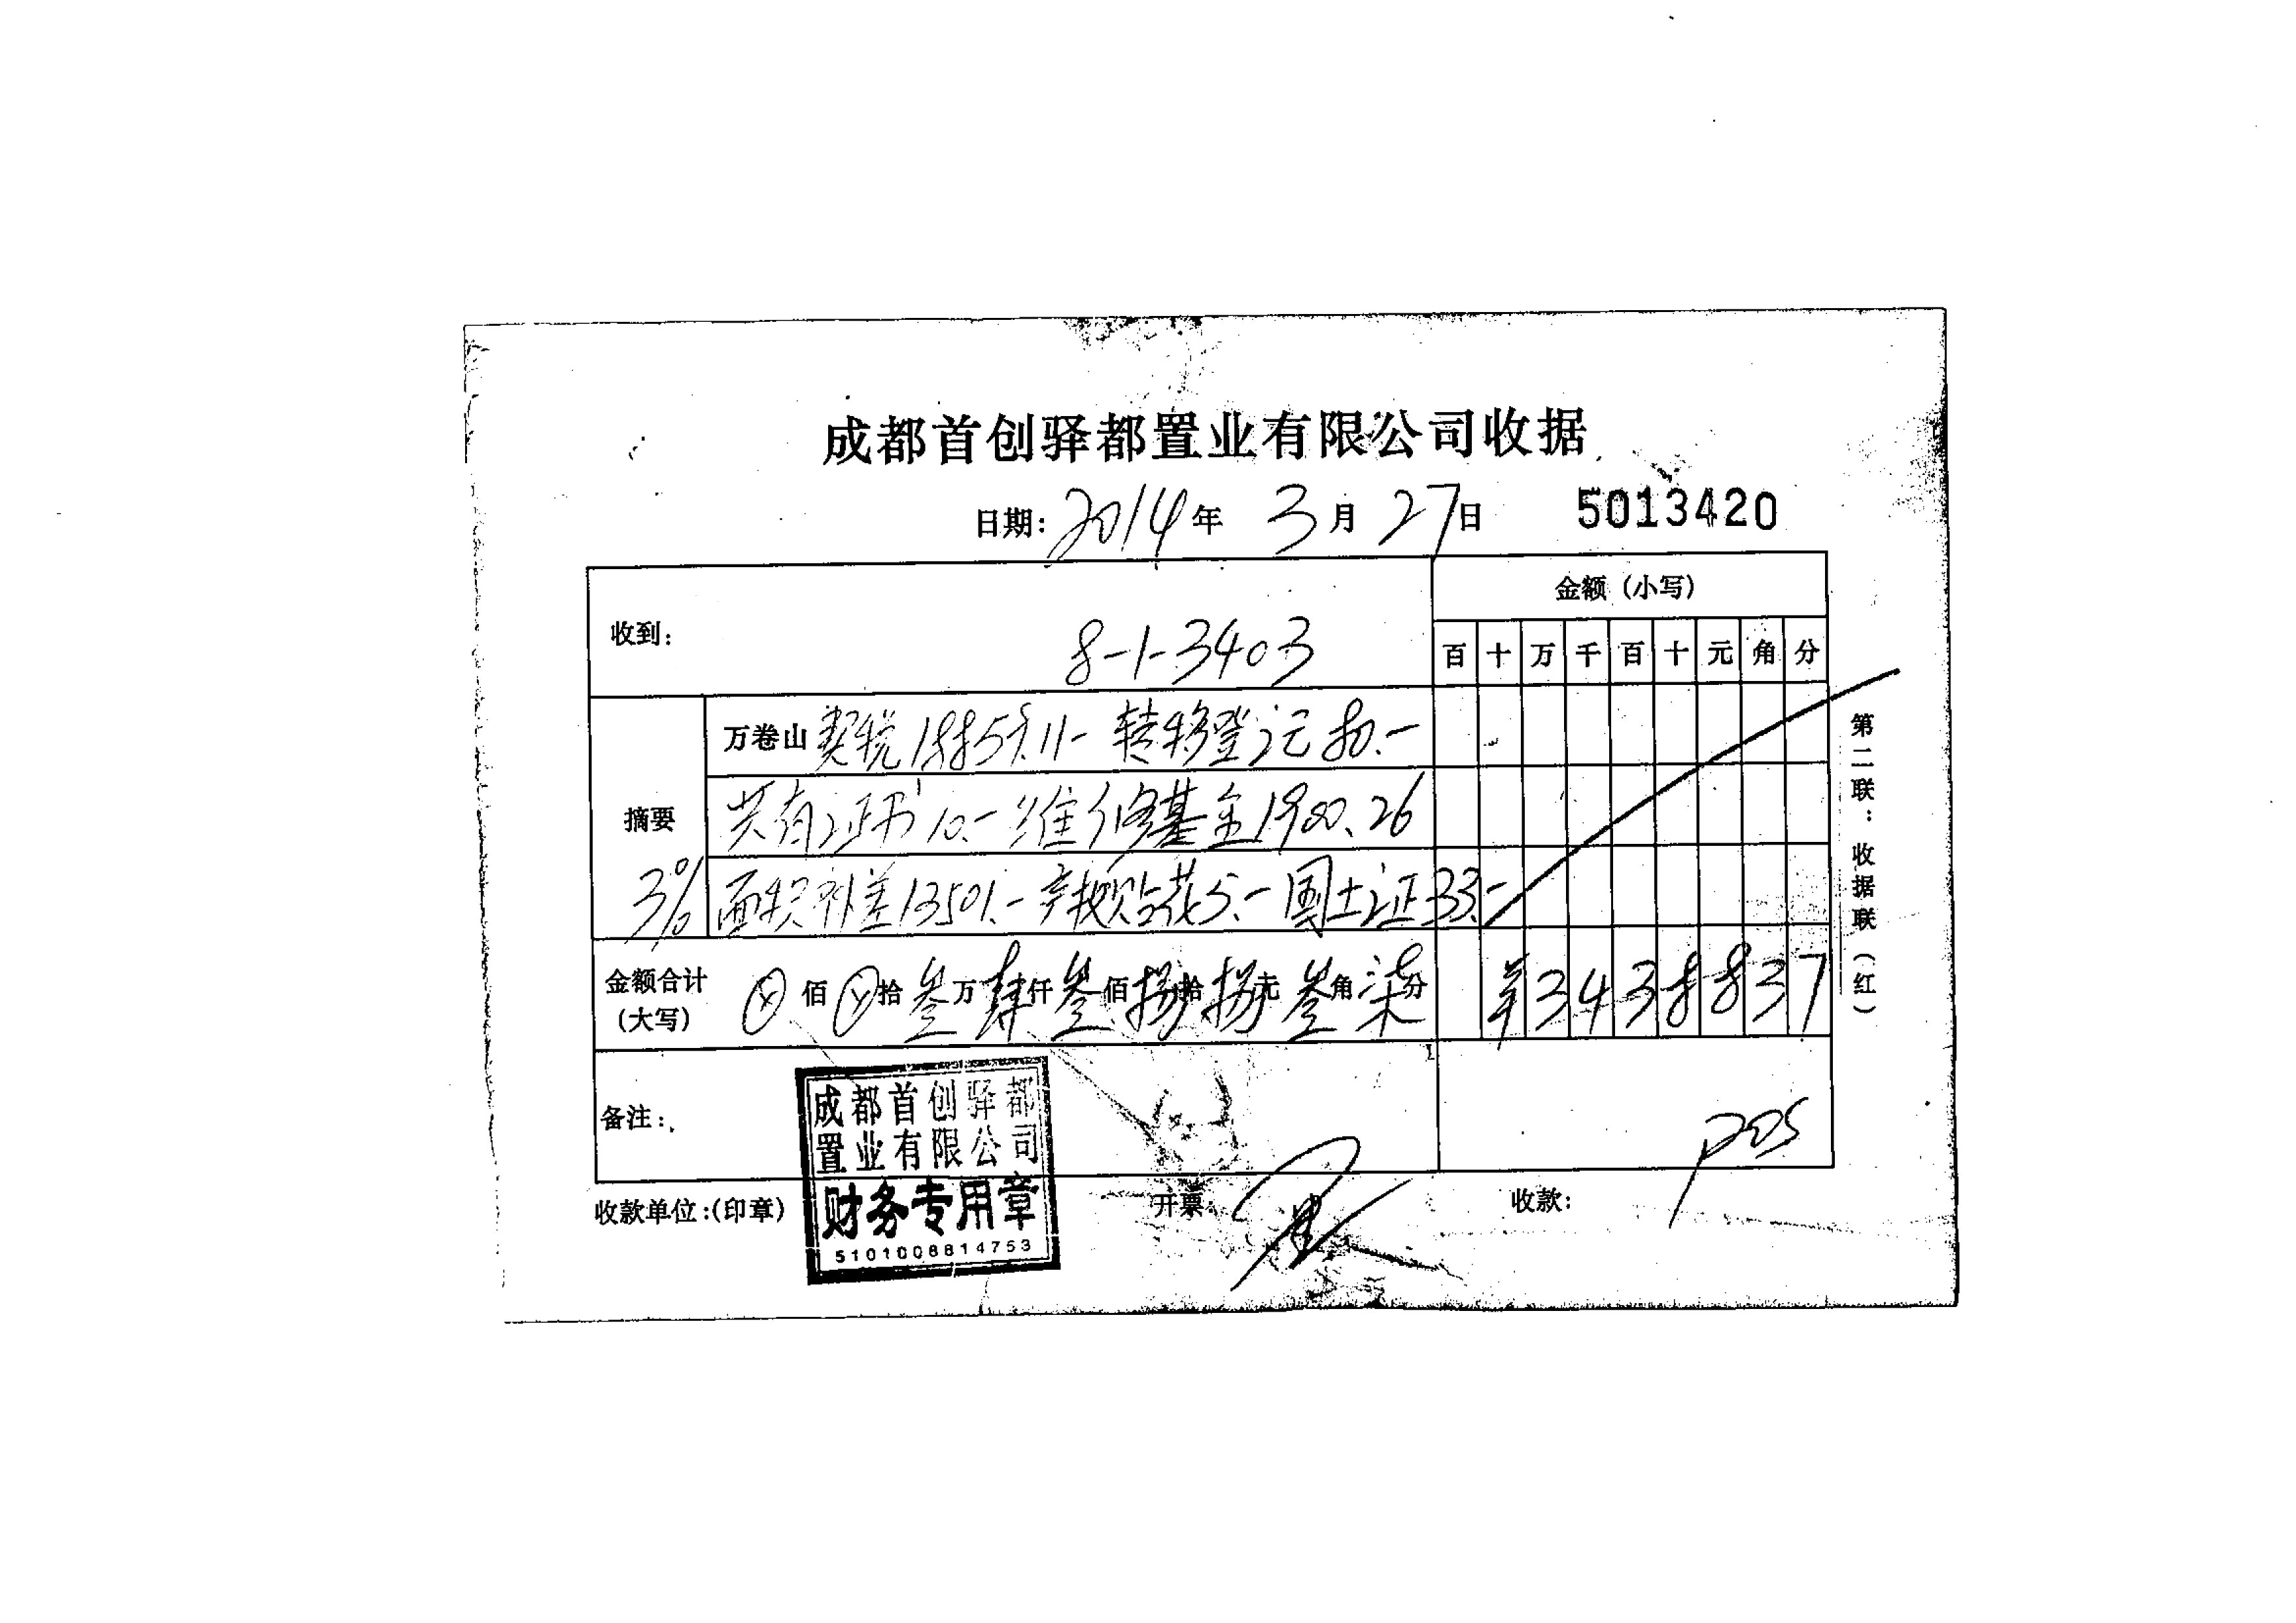 成都首创驿都置业有限公司收据
日期: 2014年 3月 27日 5013420
收到: 8-1-3403
金额（小写）
百 十 万 千 百 十 元 角 分
摘要 3%
万卷山 契税18859.11- 转移登记80.-
共有证书10.- 维修基金1900.26
面积补差13501.- 产权贴花5.- 国土证33.-
金额合计（大写） ⊗佰⊗拾叁万肆仟叁佰捌拾捌元叁角柒分 ¥3438837
备注:
pos
收款单位:(印章) 开票: 收款:
成都首创驿都
置业有限公司
财务专用章
5101008814753
第二联：收据联（红）